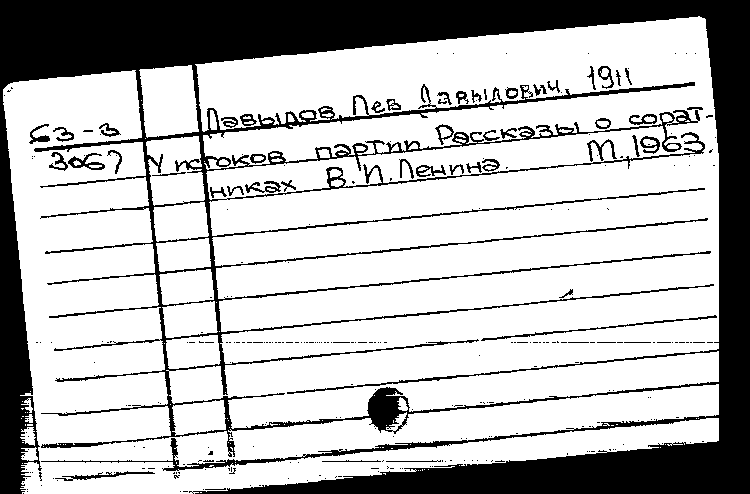 Давыдов, Лев Давыдович, 1911
63-3
3067 У истоков партии. Рассказы о сорат-
никах В. И. Ленина. М., 1963.